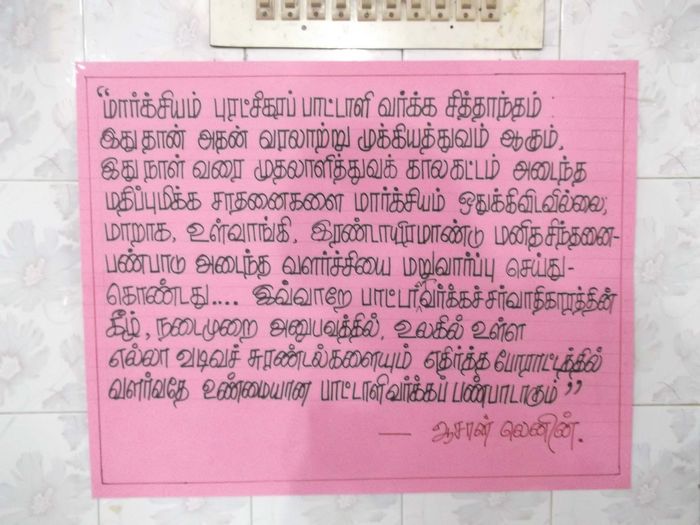 “மார்க்சியம் புரட்சிகரப் பாட்டாளி வர்க்க சித்தாந்தம்
இதுதான் அதன் வரலாற்று முக்கியத்துவம் ஆகும்,
இதுநாள் வரை முதலாளித்துவக் காலகட்டம் அடைந்த
மதிப்புமிக்க சாதனைகளை மார்க்சியம் ஒதுக்கிவிடவில்லை;
மாறாக, உள்வாங்கி, இரண்டாயிரமாண்டு மனித சிந்தனை-
பண்பாடு அடைந்த வளர்ச்சியை மறுவார்ப்பு செய்து-
கொண்டது.... இவ்வாறே பாட்டாளிவர்க்கச்சர்வாதிகாரத்தின்
கீழ், நடைமுறை அனுபவத்தில், உலகில் உள்ள
எல்லா வடிவச் சுரண்டல்களையும் எதிர்த்த போராட்டத்தில்
வளர்வதே உண்மையான பாட்டாளிவர்க்கப் பண்பாடாகும்”
— ஆசான் லெனின்.